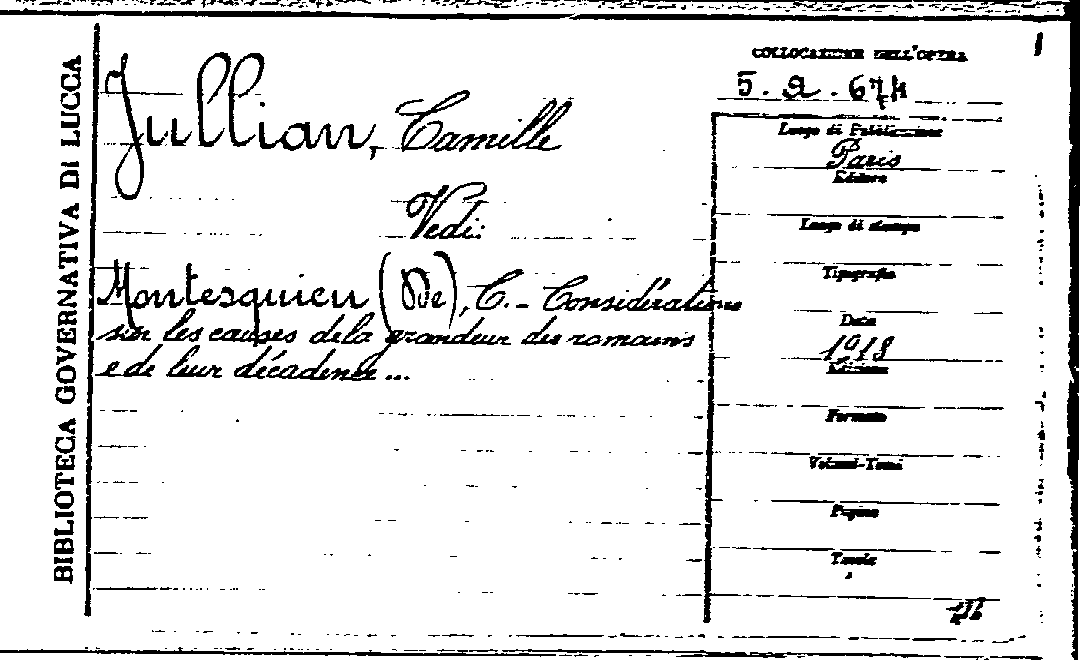 BIBLIOTECA GOVERNATIVA DI LUCCA
Jullian, Camille
Vedi:
Montesquieu (De), C. - Considérations
sur les causes de la grandeur des romains
e de leur décadence ...
COLLOCAZIONE DELL'OPERA
5. a. 674
Luogo di Pubblicazione
Paris
Editore
Luogo di stampa
Tipografia
Data
1918
Edizione
Formato
Volumi-Tomi
Pagine
Tavole